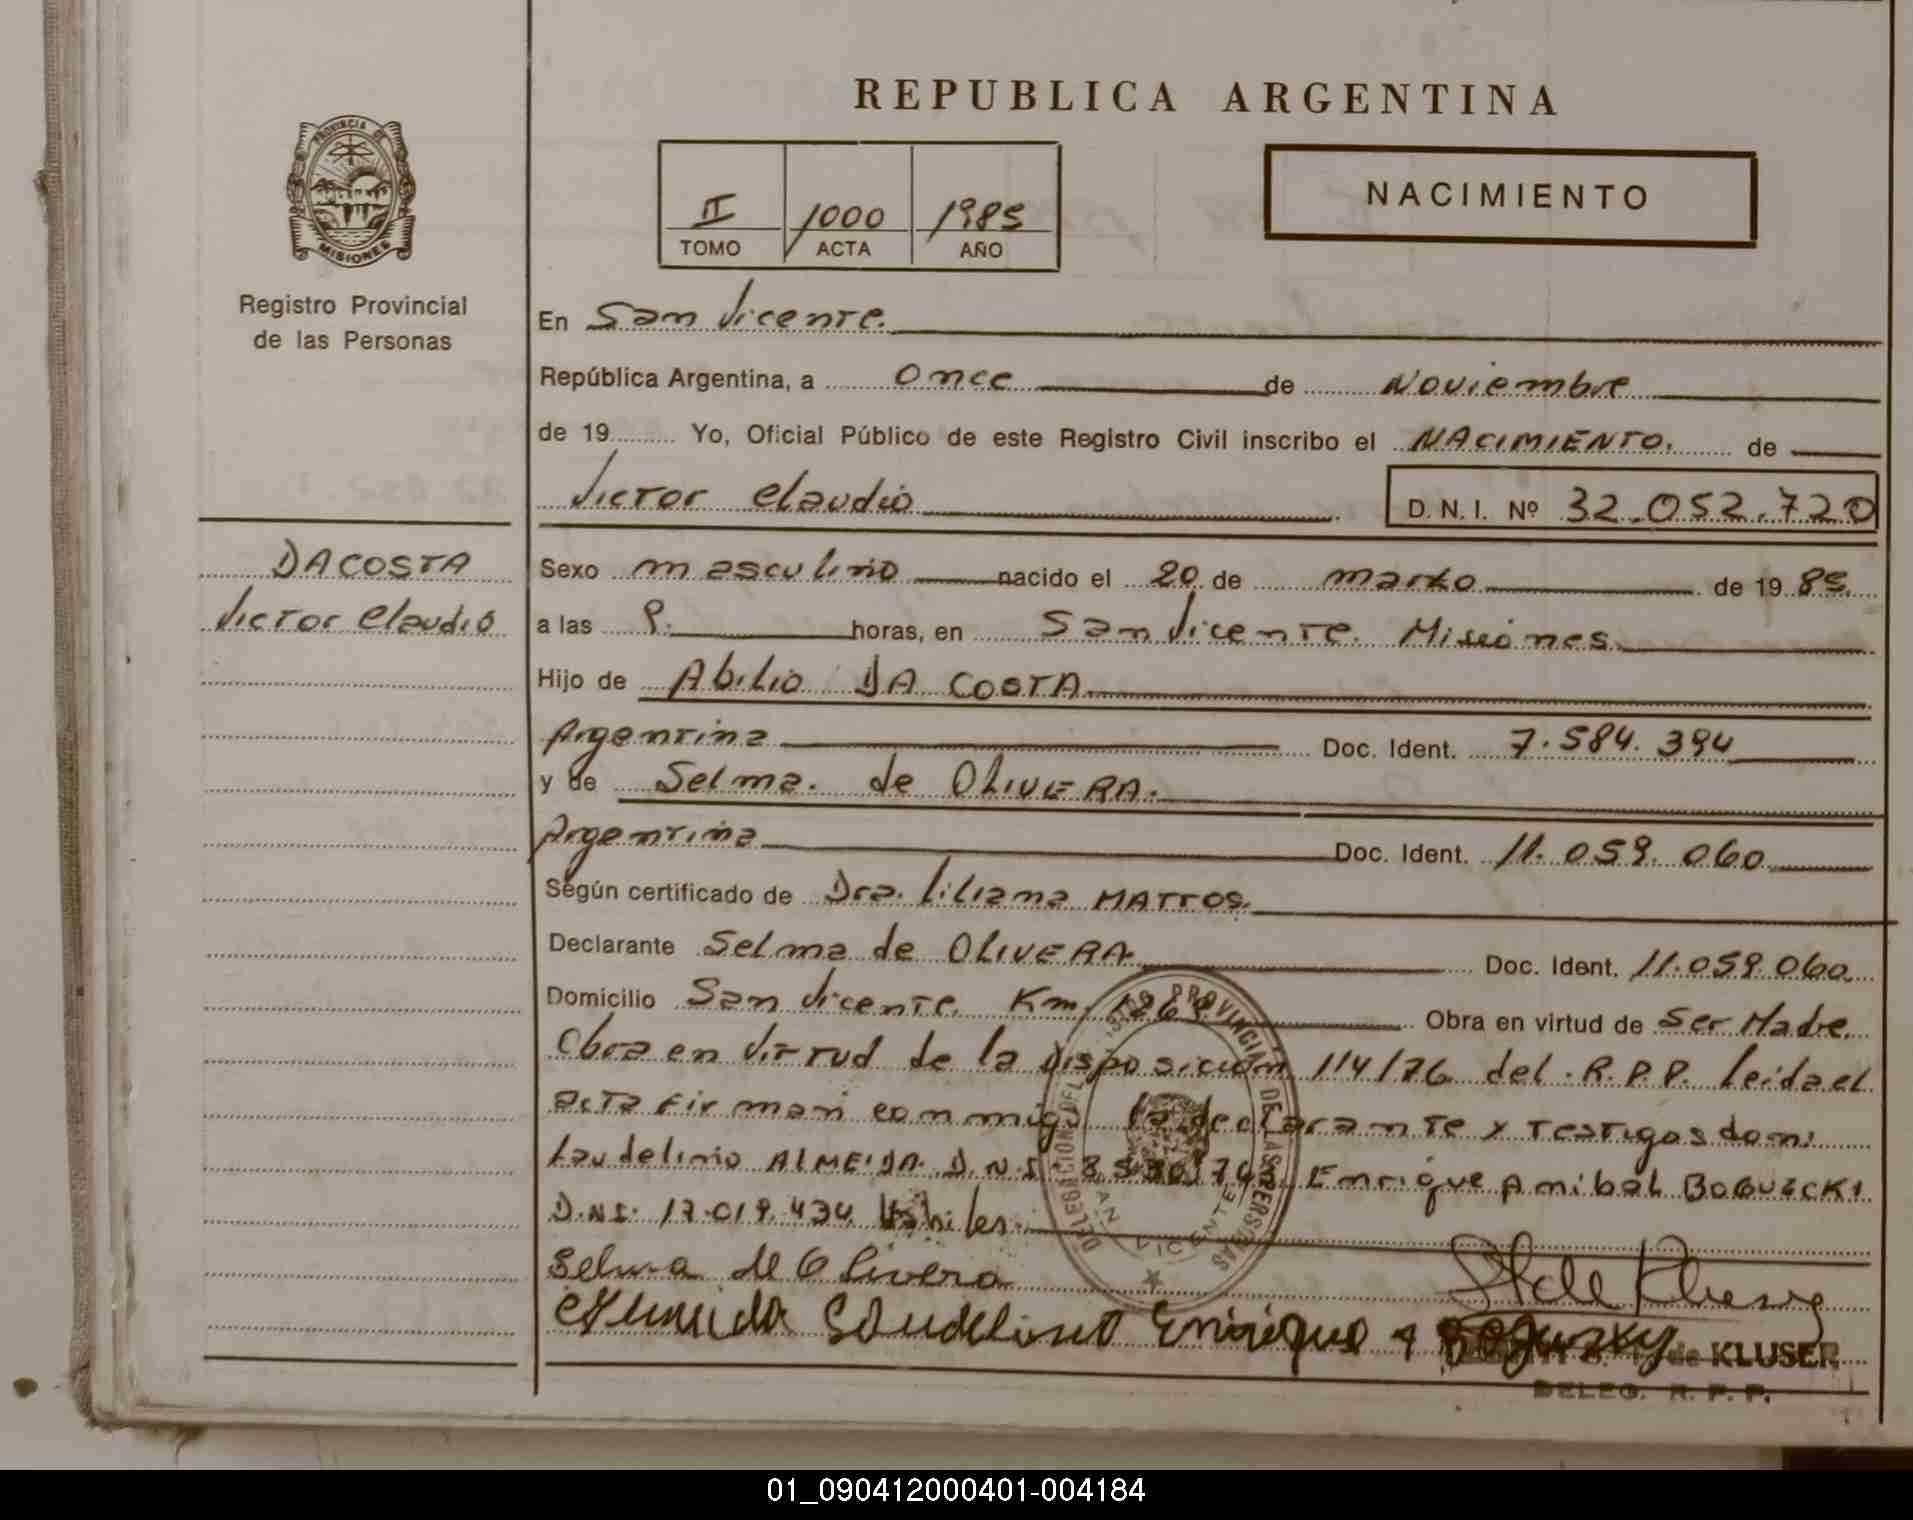 REPUBLICA ARGENTINA
PROVINCIA DE
MISIONES
Registro Provincial
de las Personas
II 1000 1985
TOMO ACTA AÑO
NACIMIENTO
En San Vicente.
República Argentina, a once de Noviembre
de 19 Yo, Oficial Público de este Registro Civil inscribo el NACIMIENTO. de
Victor Claudio D. N. I. Nº 32.052.720
DACOSTA
Victor Claudio
Sexo masculino nacido el 20 de marzo de 1985.
a las 9. horas, en San Vicente. Misiones
Hijo de Abilio DA COSTA
Argentina Doc. Ident. 7.584.394
y de Selma. de OLIVERA.
Argentina Doc. Ident. 11.059.060
Según certificado de Dra. Liliana MATTOS.
Declarante Selma de OLIVERA Doc. Ident. 11.059.060
Domicilio San Vicente. Km. 1269 Obra en virtud de Ser Madre.
Obra en virtud de la Disposición 114/76 del R.P.P. leida el
acta firman conmigo la declarante y testigos dom:
Laudelino ALMEIDA D.N.I. Enrique Anibal BOGUZCKI
D.N.I. 17.019.434 Habiles.
DELEGACION DEL REGISTRO PROVINCIAL DE LAS PERSONAS
SAN VICENTE
Selma de Olivera
Almeida Laudelino Enrique A
de KLUSER
DELEG. R. P. P.
01_090412000401-004184